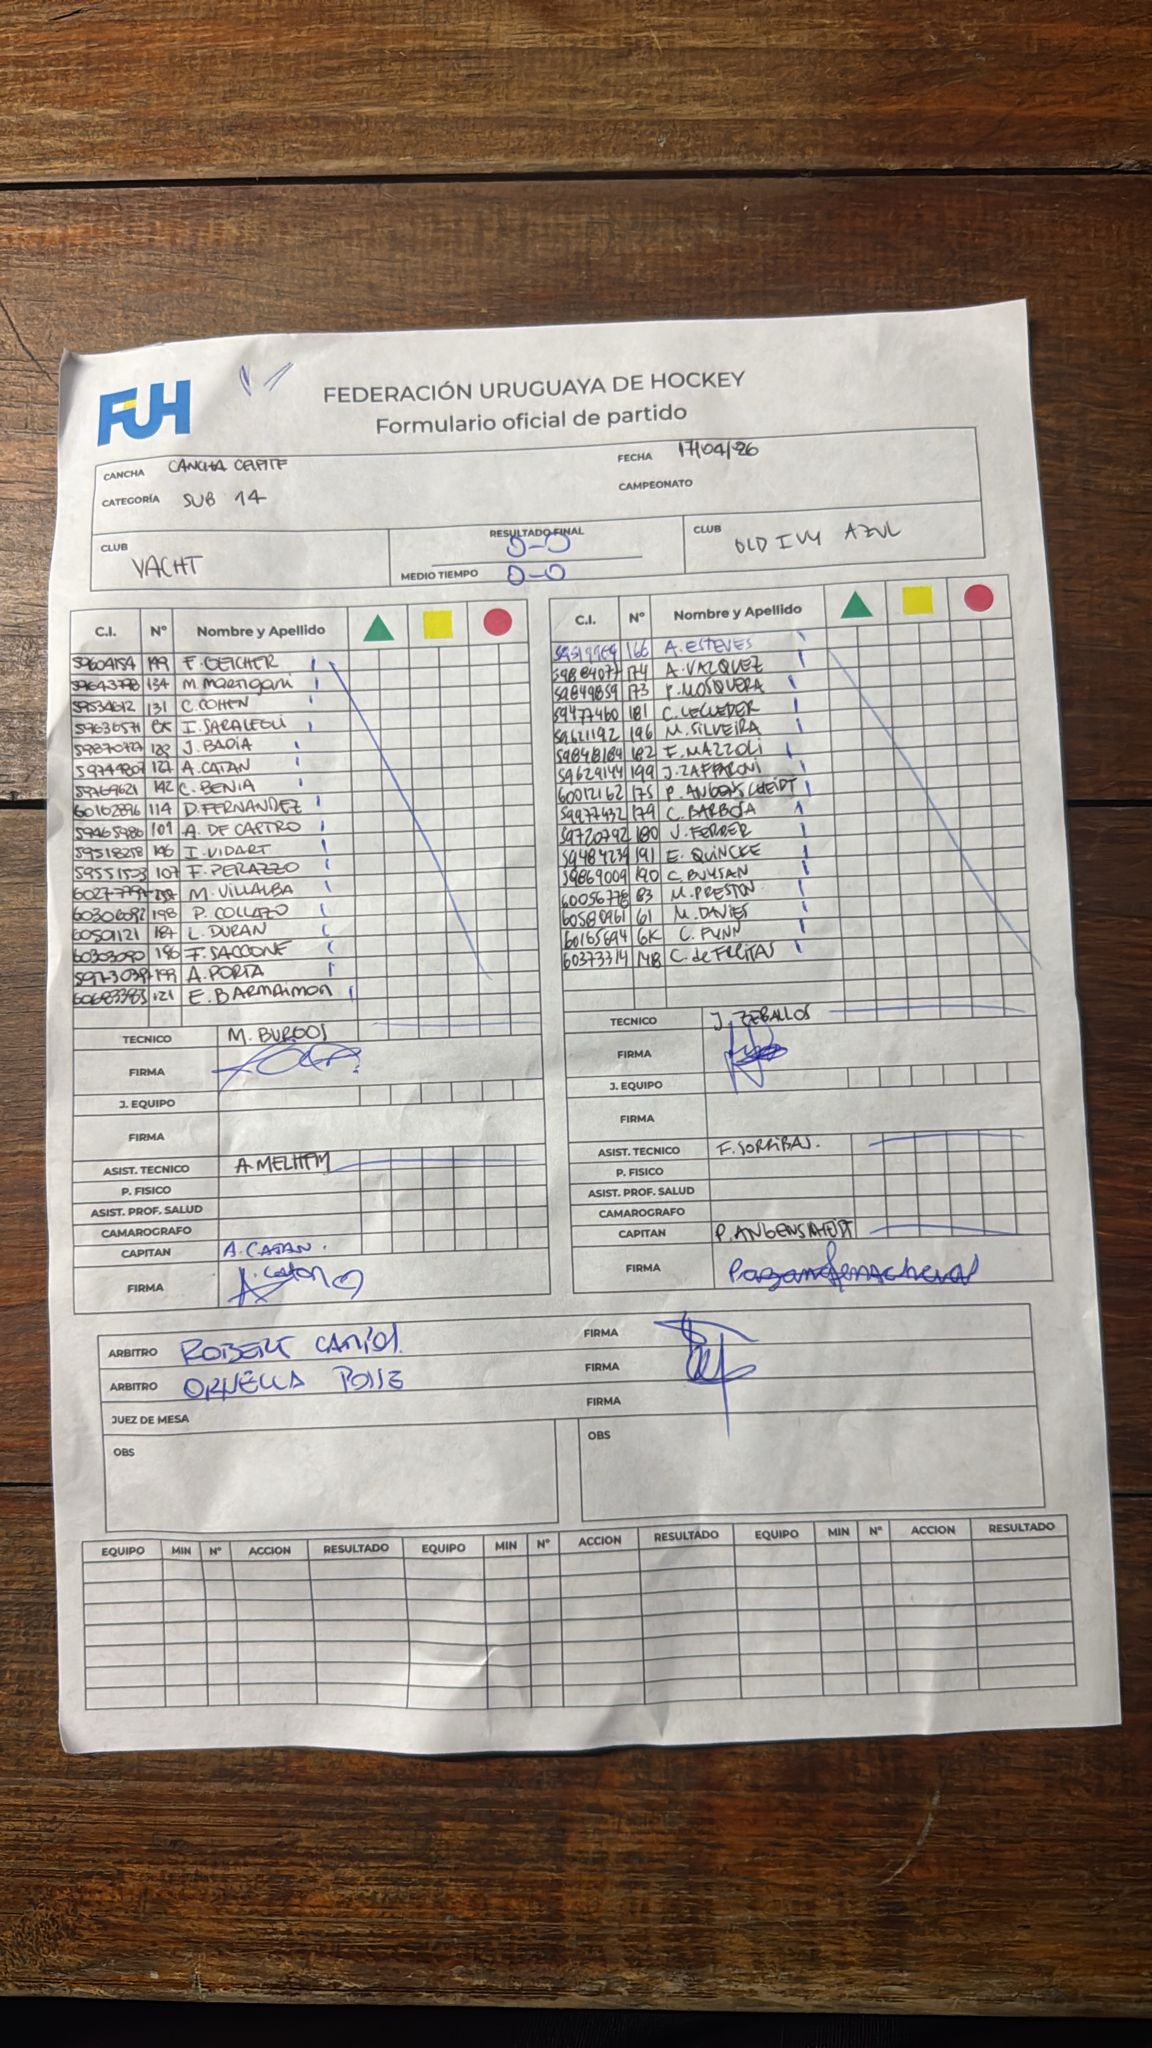 FUH
FEDERACIÓN URUGUAYA DE HOCKEY
Formulario oficial de partido
CANCHA CANCHA CELESTE
FECHA 17/04/26
CATEGORÍA SUB 14
CAMPEONATO
CLUB YACHT
RESULTADO FINAL 0-0
MEDIO TIEMPO 0-0
CLUB OLD IVY AZUL
C.I. Nº Nombre y Apellido
149 F. GEICHER
134 M. Marrigani
131 C. COHEN
GK I. SARALEGUI
J. BADIA
A. CATAN
142 C. BENIA
60162896 114 D. FERNANDEZ
59465986 109 A. DE CASTRO
59518258 146 I. VIDART
59551503 107 F. PERAZZO
M. VILLALBA
198 P. COLLAZO
60501121 187 L. DURAN
60303090 186 F. SACCONE
199 A. PORTA
60683383 121 E. BARMAIMON
TECNICO M. BURGOS
FIRMA
J. EQUIPO
FIRMA
ASIST. TECNICO A. MELHEM
P. FISICO
ASIST. PROF. SALUD
CAMAROGRAFO
CAPITAN A. CATAN.
FIRMA A. Catan
C.I. Nº Nombre y Apellido
166 A. ESTEVES
59884077 174 A. VAZQUEZ
59849859 173 P. MOSQUERA
59477460 181 C. LECUEDER
59621192 196 M. SILVEIRA
59848184 182 F. MAZZOLI
59629144 199 J. ZAFFARONI
60012162 175 P. ANGENSCHEIDT
59977432 179 C. BARBOSA
59720792 180 J. FERRER
59484239 191 E. QUINCKE
59869009 190 C. BUYSAN
60056778 83 M. PRESTON
60580961 61 M. DAVIES
60165694 GK C. FYNN
60373314 148 C. de FREITAS
TECNICO J. ZEBALLOS
FIRMA
J. EQUIPO
FIRMA
ASIST. TECNICO F. SORRIBAS.
P. FISICO
ASIST. PROF. SALUD
CAMAROGRAFO
CAPITAN P. ANGENSCHEIDT
FIRMA
ARBITRO ROBERT
FIRMA
ARBITRO ORNELLA POSSE
FIRMA
JUEZ DE MESA
FIRMA
OBS
OBS
EQUIPO MIN Nº ACCION RESULTADO EQUIPO MIN Nº ACCION RESULTADO EQUIPO MIN Nº ACCION RESULTADO